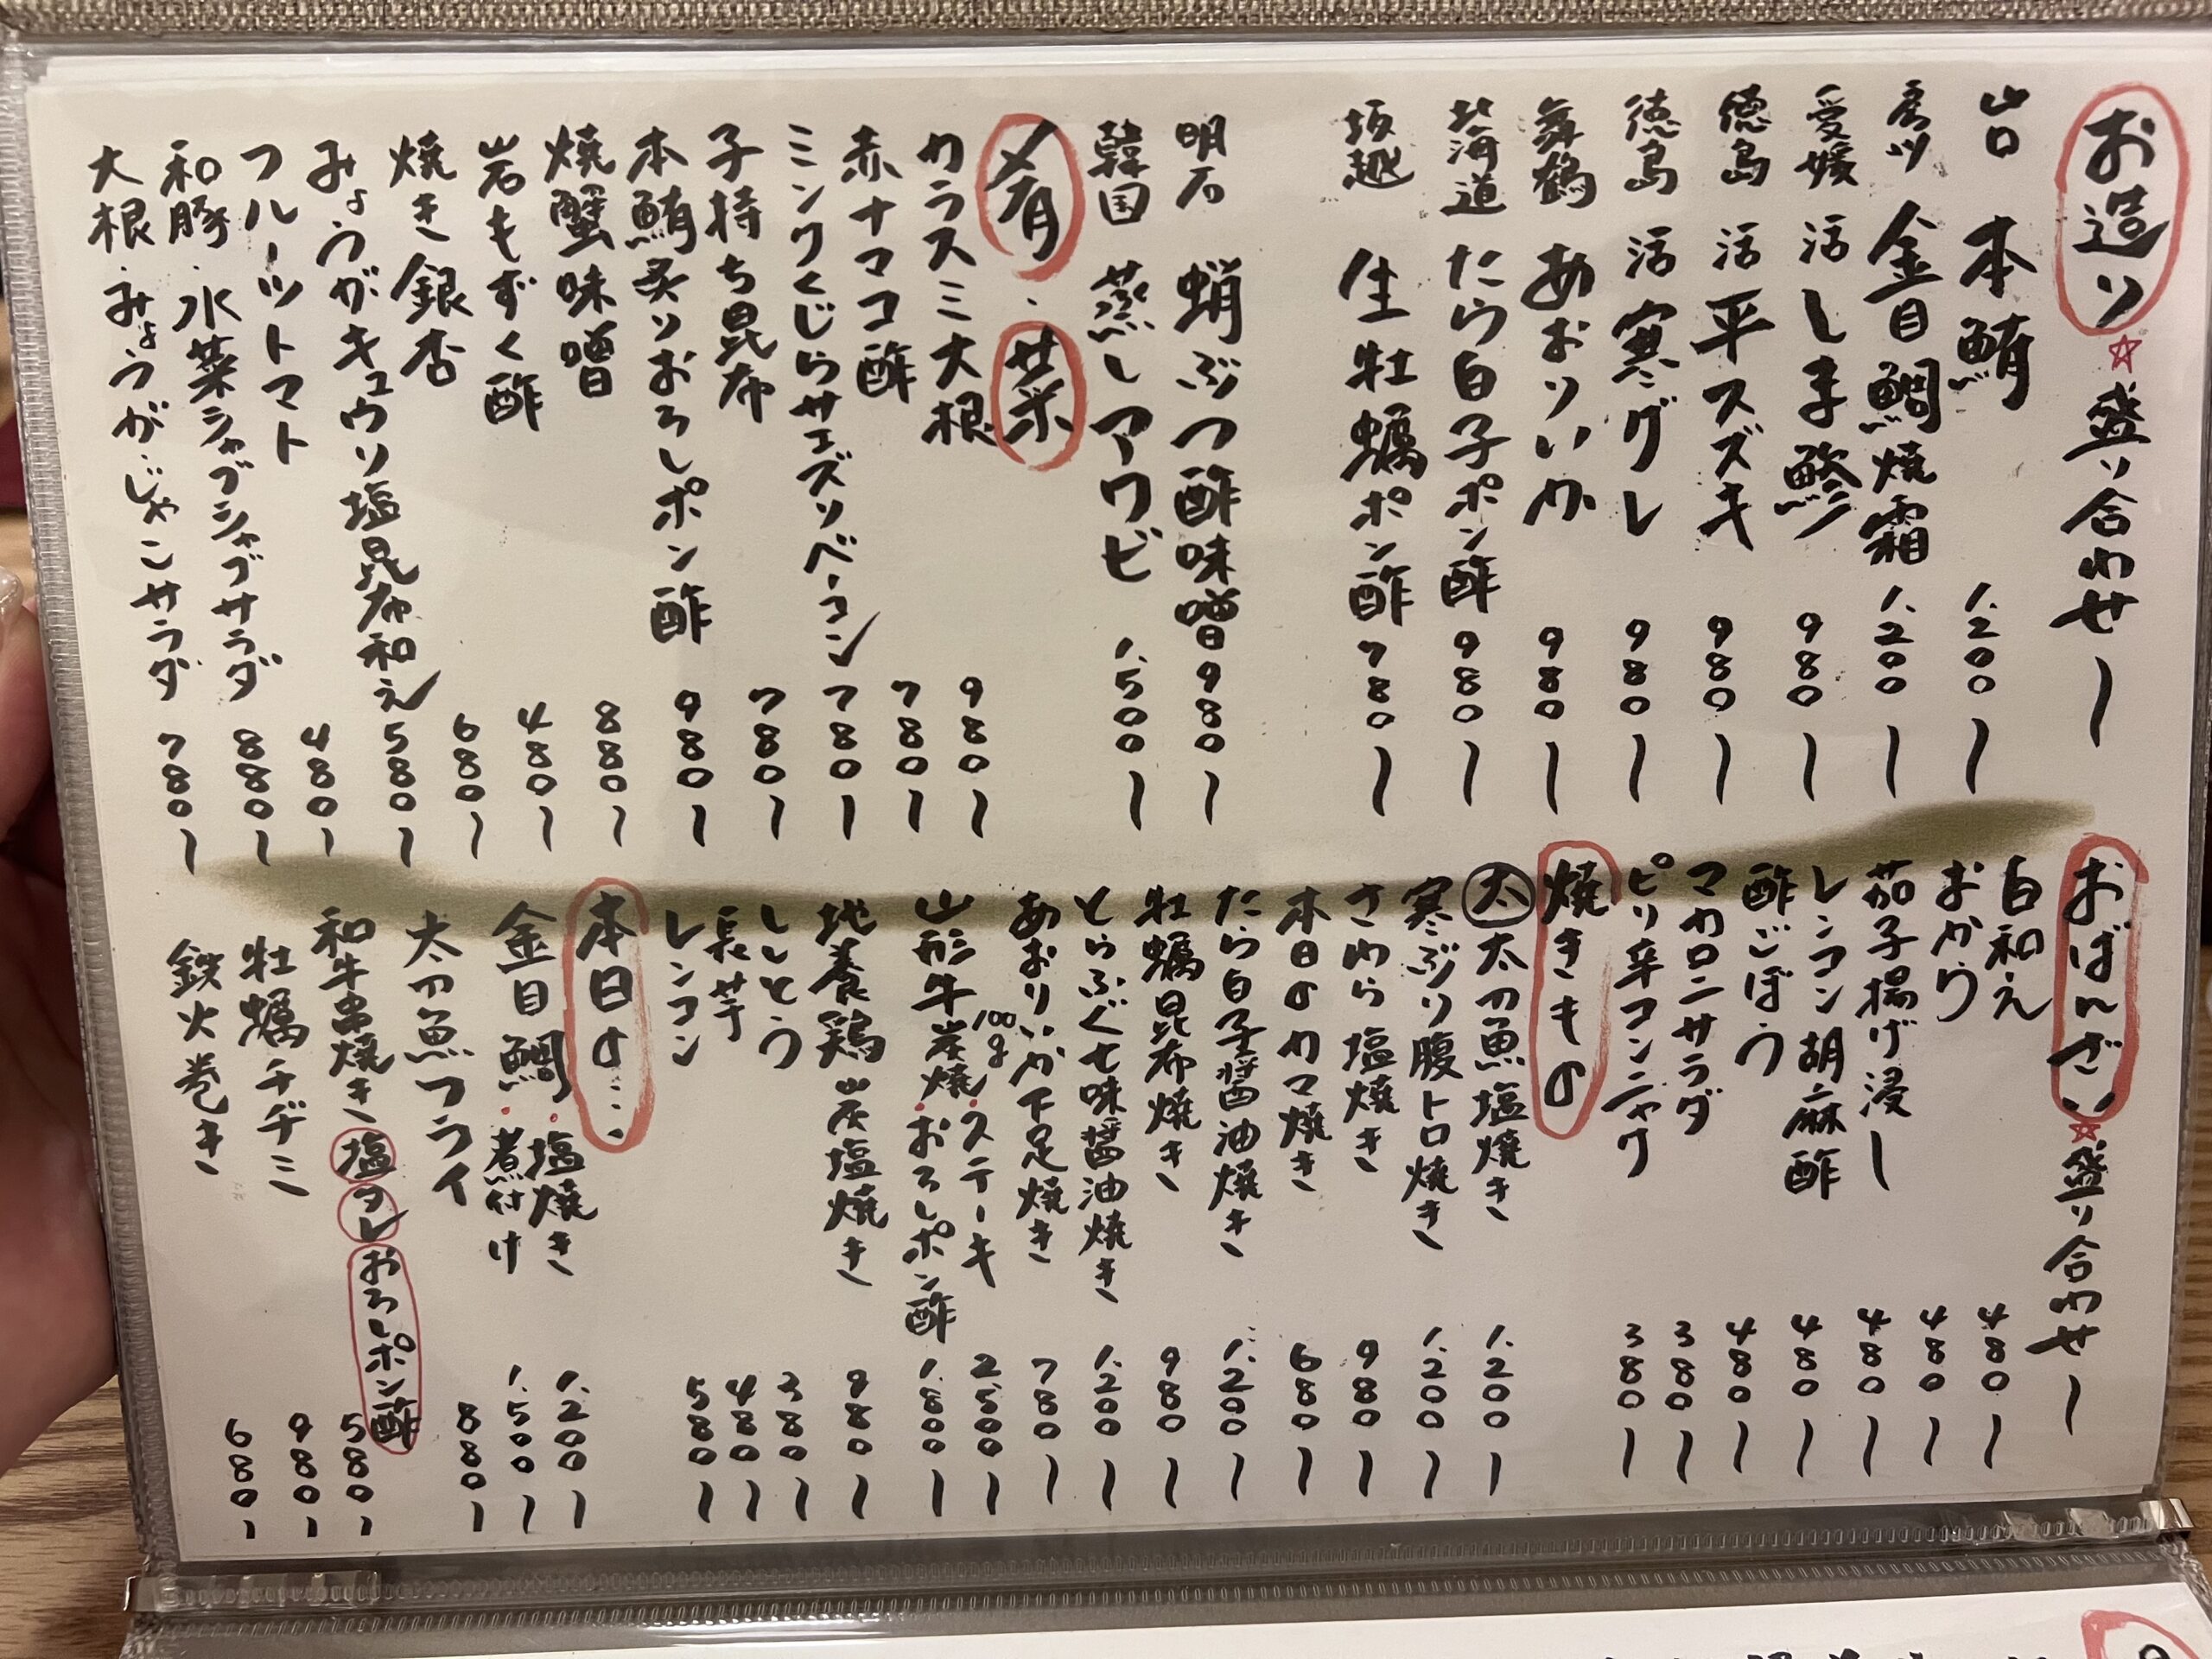 お造り☆盛り合わせー
山口 本鮪 1.200ー
房州 金目鯛焼霜 1.200ー
愛媛 活しま鯵 980ー
徳島 活平スズキ 980ー
徳島 活寒グレ 980ー
舞鶴 あおりいか 980ー
北海道 たら白子ポン酢 980ー
坂越 生牡蠣ポン酢 780ー
明石 蛸ぶつ酢味噌 980ー
韓国 蒸しアワビ 1.500ー
肴・菜
カラスミ大根 980ー
赤ナマコ酢 780ー
ミンクくじらサエズリベーコン 780ー
子持ち昆布 780ー
本鮪炙りおろしポン酢 980ー
焼蟹味噌 880ー
岩もずく酢 480ー
焼き銀杏 680ー
みょうがキュウリ塩昆布和え 580ー
フルーツトマト 480ー
和豚・水菜シャブシャブサラダ 880ー
大根・みょうが・じゃこサラダ 780ー
おばんざい☆盛り合わせー
白和え 480ー
おから 480ー
茄子揚げ浸し 480ー
レンコン胡麻酢 480ー
酢ごぼう 480ー
マカロニサラダ 380ー
ピリ辛コンニャク 380ー
焼きもの
太 太刀魚塩焼き 1.200ー
寒ぶり腹トロ焼き 1.200ー
さわら塩焼き 980ー
本日のカマ焼き 680ー
たら白子醤油焼き 1.200ー
牡蠣昆布焼き 980ー
とらふぐ七味醤油焼き 1.200ー
あおりいか下足焼き 780ー
山形牛炭焼 100g・ステーキ 2.500ー
・おろしポン酢 1.800ー
地養鶏炭塩焼き 980ー
ししとう 380ー
長芋 480ー
レンコン 580ー
本日の…
金目鯛・塩焼き 1.200ー
・煮付け 1.500ー
太刀魚フライ 880ー
和牛串焼き 塩 タレ おろしポン酢 580ー
牡蠣チヂミ 980ー
鉄火巻き 680ー